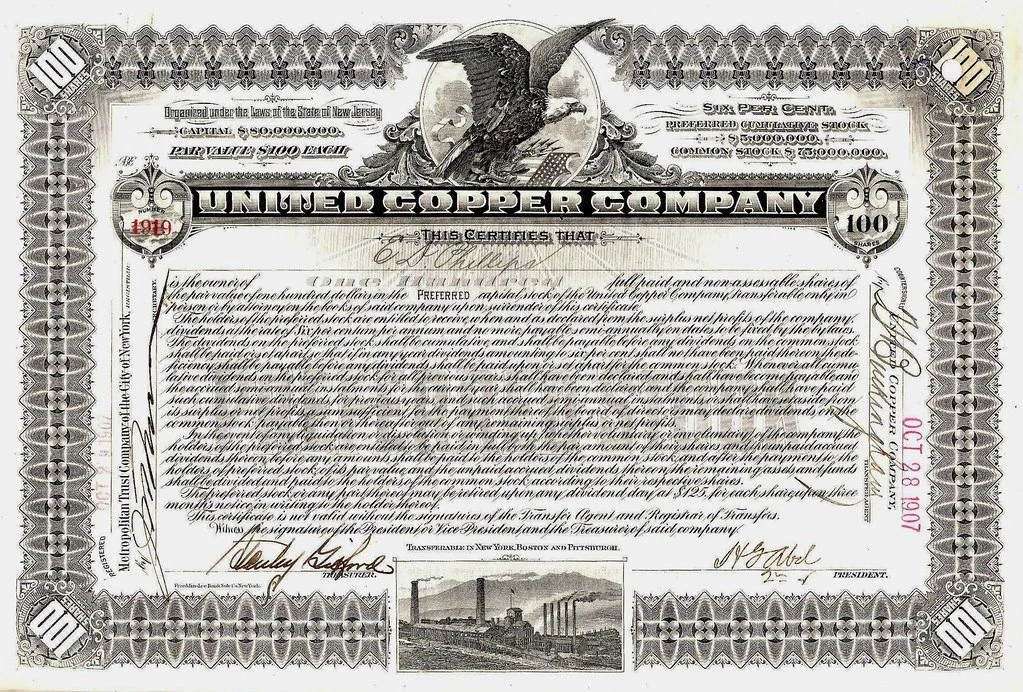 100 SHARES
100 SHARES
Organized under the Laws of the State of New Jersey
CAPITAL $80,000,000.
PAR VALUE $100 EACH.
SIX PER CENT.
PREFERRED CUMULATIVE STOCK
$5,000,000.
COMMON STOCK $75,000,000.
UNITED COPPER COMPANY
NUMBER
1919
100
SHARES
THIS CERTIFIES THAT
E D Phillips
is the owner of One Hundred full paid and non-assessable shares of
the par value of one hundred dollars in the PREFERRED capital stock of the United Copper Company, transferable only in
person or by attorney on the books of said company upon surrender of this certificate.
The holders of the preferred stock are entitled to receive when and as declared from the surplus net profits of the company,
dividends at the rate of six per centum per annum and no more payable semi-annually on dates to be fixed by the by laws.
The dividends on the preferred stock shall be cumulative and shall be payable before any dividends on the common stock
shall be paid or set apart; so that if in any year dividends amounting to six per cent shall not have been paid thereon, the de-
ficiency shall be payable before any dividends shall be paid upon or set apart for the common stock. Whenever all cumu-
lative dividends on the preferred stock for all previous years shall have been declared and shall have become payable and
the accrued semi-annual instalments for the current year shall have been declared and the company shall have paid
such cumulative dividends for previous years and such accrued semi-annual instalments or shall have set aside from
its surplus or net profits a sum sufficient for the payment thereof the board of directors may declare dividends on the
common stock payable then or thereafter out of any remaining surplus or net profits.
In the event of any liquidation or dissolution or winding up (whether voluntary or involuntary) of the company, the
holders of the preferred stock shall be entitled to be paid in full both the par amount of their shares and the unpaid accrued
dividends thereon before any amount shall be paid to the holders of the common stock, and after the payment to the
holders of preferred stock of its par value, and the unpaid accrued dividends thereon, the remaining assets and funds
shall be divided and paid to the holders of the common stock according to their respective shares.
The preferred stock or any part thereof may be retired upon any dividend day at $125, for each share, upon three
months notice in writing to the holder thereof.
This certificate is not valid without the signatures of the Transfer Agent and Registrar of Transfers.
Witness the signature of the President or Vice President and the Treasurer of said company.
Stanley Gifford
TREASURER.
TRANSFERABLE IN NEW YORK, BOSTON AND PITTSBURGH.
PRESIDENT.
Franklin-Lee Bank Note Co. New York.
REGISTERED OCT 29 1907
Metropolitan Trust Company of the City of New York,
REGISTRAR
by
SECRETARY.
COUNTERSIGNED
UNITED COPPER COMPANY,
by
TRANSFER AGENT
OCT 28 1907
100 SHARES
100 SHARES